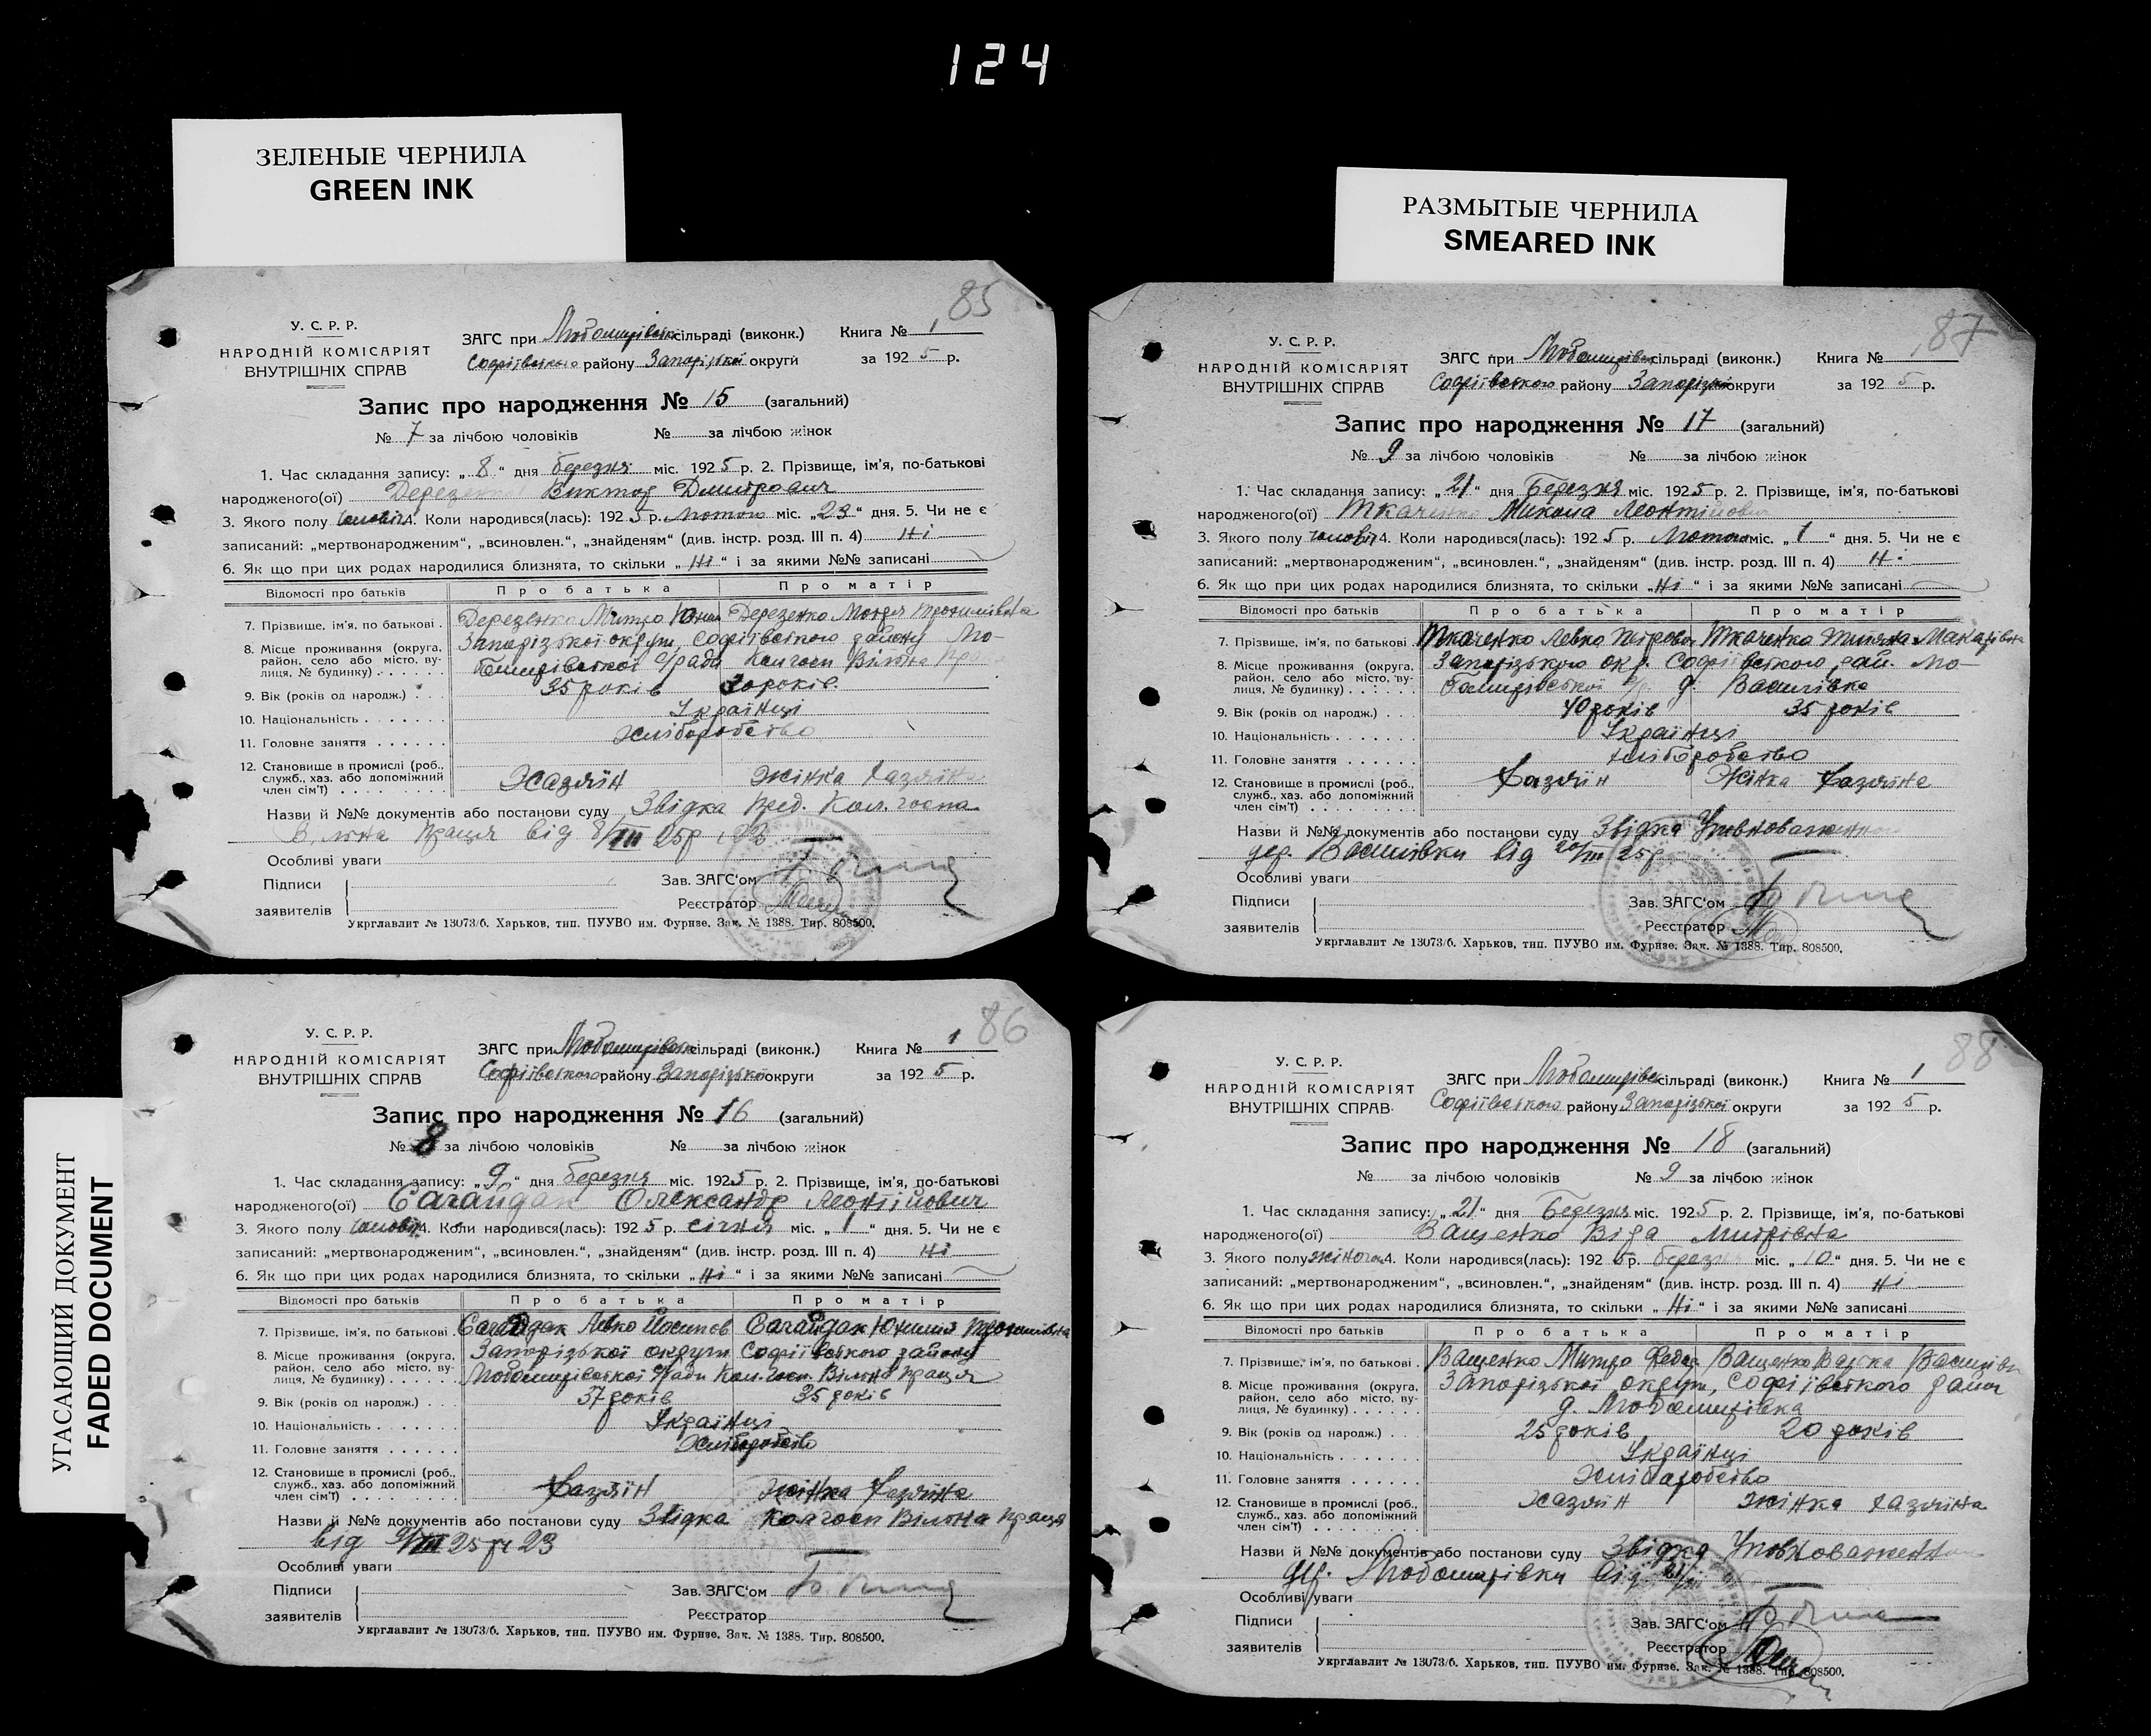 124
ЗЕЛЕНЫЕ ЧЕРНИЛА
GREEN INK
РАЗМЫТЫЕ ЧЕРНИЛА
SMEARED INK
УГАСАЮЩИЙ ДОКУМЕНТ
FADED DOCUMENT
85
У. С. Р. Р.
НАРОДНІЙ КОМІСАРІЯТ
ВНУТРІШНІХ СПРАВ
ЗАГС при сільраді (виконк.) Книга № 1
Софіївського району Запорізької округи за 1925 р.
Запис про народження № 15 (загальний)
№ 7 за лічбою чоловіків № за лічбою жінок
1. Час складання запису: „8“ дня березня міс. 1925 р. 2. Прізвище, ім'я, по-батькові
народженого(ої) Дерезенко Виктор Дмитрович
3. Якого полу чоловіч 4. Коли народився(лась): 1925 р. лютого міс. „23“ дня. 5. Чи не є
записаний: „мертвонародженим“, „всиновлен.“, „знайденям“ (див. інстр. розд. III п. 4) Ні
6. Як що при цих родах народилися близнята, то скільки „Ні“ і за якими №№ записані
Відомості про батьків Про батька Про матір
7. Прізвище, ім'я, по батькові . Дерезенко Митро Дерезенко Мотря
8. Місце проживання (округа, Запорізької округи, Софіївського району Лю-
район, село або місто, ву- с/ради Колгосп Вільна
лиця, № будинку) . . . . . .
9. Вік (років од народж.) . . . 35 років 30 років.
10. Національність . . . . . . . Українці
11. Головне заняття . . . . . . Хліборобство
12. Становище в промислі (роб., Хазяїн Жінка хазяїна
служб., хаз. або допоміжний
член сім'ї) . . . . . . . . .
Назви й №№ документів або постанови суду Звідка Кол. госпа
Вільна Праця від 8/III 25р
Особливі уваги
Підписи Зав. ЗАГС'ом
заявителів Реєстратор
Укрглавлит № 13073/б. Харьков, тип. ПУУВО им. Фурнзе. Зак. № 1388. Тир. 808500.
86
У. С. Р. Р.
НАРОДНІЙ КОМІСАРІЯТ
ВНУТРІШНІХ СПРАВ
ЗАГС при сільраді (виконк.) Книга № 1
Софіївського району Запорізької округи за 1925 р.
Запис про народження № 16 (загальний)
№ 8 за лічбою чоловіків № за лічбою жінок
1. Час складання запису: „9“ дня березня міс. 1925 р. 2. Прізвище, ім'я, по-батькові
народженого(ої) Сагайдак Олександр Леонтійович
3. Якого полу чоловіч 4. Коли народився(лась): 1925 р. січня міс. „1“ дня. 5. Чи не є
записаний: „мертвонародженим“, „всиновлен.“, „знайденям“ (див. інстр. розд. III п. 4) Ні
6. Як що при цих родах народилися близнята, то скільки „Ні“ і за якими №№ записані
Відомості про батьків Про батька Про матір
7. Прізвище, ім'я, по батькові . Сагайдак Левко Йосипов Сагайдак
8. Місце проживання (округа, Запорізької округи Софіївського району
район, село або місто, ву- с/ради Колгосп Вільна Праця
лиця, № будинку) . . . . .
9. Вік (років од народж.) . . . 37 років 35 років
10. Національність . . . . . . . Українці
11. Головне заняття . . . . . . Хліборобство
12. Становище в промислі (роб., Хазяїн Жінка Хазяїна
служб., хаз. або допоміжний
член сім'ї) . . . . . . . . .
Назви й №№ документів або постанови суду Звідка Колгосп Вільна Праця
від 9/III 25 р. 23
Особливі уваги
Підписи Зав. ЗАГС'ом
заявителів Реєстратор
Укрглавлит № 13073/б. Харьков, тип. ПУУВО им. Фурнзе. Зак. № 1388. Тир. 808500.
87
У. С. Р. Р.
НАРОДНІЙ КОМІСАРІЯТ
ВНУТРІШНІХ СПРАВ
ЗАГС при сільраді (виконк.) Книга №
Софіївського району Запорізької округи за 1925 р.
Запис про народження № 17 (загальний)
№ 9 за лічбою чоловіків № за лічбою жінок
1. Час складання запису: „21“ дня Березня міс. 1925 р. 2. Прізвище, ім'я, по-батькові
народженого(ої) Ткаченко Микола Леонтійович
3. Якого полу чоловіч 4. Коли народився(лась): 1925 р. Лютого міс. „1“ дня. 5. Чи не є
записаний: „мертвонародженим“, „всиновлен.“, „знайденям“ (див. інстр. розд. III п. 4) Ні
6. Як що при цих родах народилися близнята, то скільки „Ні“ і за якими №№ записані
Відомості про батьків Про батька Про матір
7. Прізвище, ім'я, по батькові . Ткаченко Левко Ткаченко Макарівна
8. Місце проживання (округа, Запорізького окр. Софіївського рай. Лю-
район, село або місто, ву- д. Василівка
лиця, № будинку) . . . . .
9. Вік (років од народж.) . . . 40 років 35 років
10. Національність . . . . . . . Українці
11. Головне заняття . . . . . . Хліборобство
12. Становище в промислі (роб., Хазяїн Жінка Хазяїна
служб., хаз. або допоміжний
член сім'ї) . . . . . . . . .
Назви й №№ документів або постанови суду Звідка Уповноваженн
дер. Василівки від 20/III 25р
Особливі уваги
Підписи Зав. ЗАГС'ом
заявителів Реєстратор
Укрглавлит № 13073/б. Харьков, тип. ПУУВО им. Фурнзе. Зак. № 1388. Тир. 808500.
88
У. С. Р. Р.
НАРОДНІЙ КОМІСАРІЯТ
ВНУТРІШНІХ СПРАВ
ЗАГС при сільраді (виконк.) Книга № 1
Софіївського району Запорізької округи за 1925 р.
Запис про народження № 18 (загальний)
№ за лічбою чоловіків № 9 за лічбою жінок
1. Час складання запису: „21“ дня Березня міс. 1925 р. 2. Прізвище, ім'я, по-батькові
народженого(ої) Ващенко Віра Митрівна
3. Якого полу жіноча 4. Коли народився(лась): 1925 р. березня міс. „10“ дня. 5. Чи не є
записаний: „мертвонародженим“, „всиновлен.“, „знайденям“ (див. інстр. розд. III п. 4) Ні
6. Як що при цих родах народилися близнята, то скільки „Ні“ і за якими №№ записані
Відомості про батьків Про батька Про матір
7. Прізвище, ім'я, по батькові . Ващенко Митро Федор Ващенко Варка Василівн
8. Місце проживання (округа, Запорізької округи, Софіївського район
район, село або місто, ву- д. Любомирівка
лиця, № будинку) . . . . . .
9. Вік (років од народж.) . . . 25 років 20 років
10. Національність . . . . . . . Українці
11. Головне заняття . . . . . . Хліборобство
12. Становище в промислі (роб., Хазяїн Жінка хазяїна
служб., хаз. або допоміжний
член сім'ї) . . . . . . . . .
Назви й №№ документів або постанови суду Звідка Уповноваженн
дер. Любомирівки від
Особливі уваги
Підписи Зав. ЗАГС'ом
заявителів Реєстратор
Укрглавлит № 13073/б. Харьков, тип. ПУУВО им. Фурнзе. Зак. № 1388. Тир. 808500.